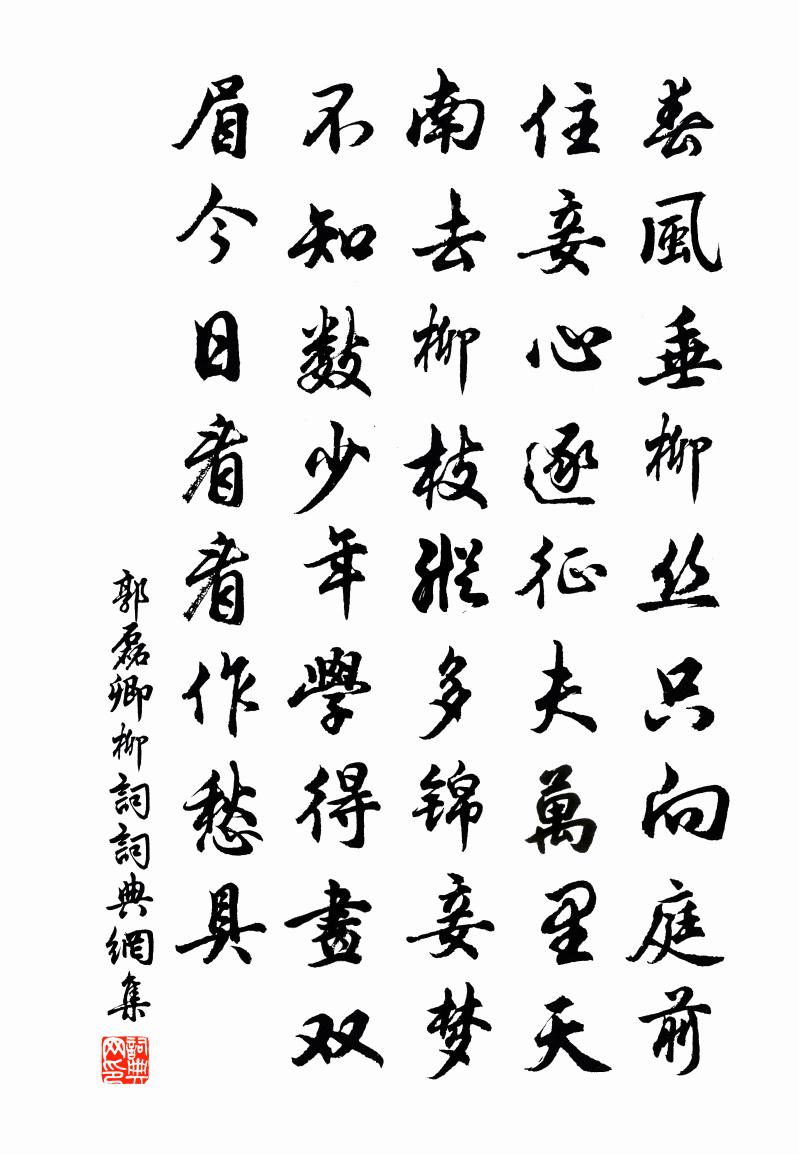 春風垂柳丝只向庭前
住妾心逐征夫萬里天
南去柳枝縱多錦妾梦
不知数少年學得畫双
眉今日看看作愁具
郭磊卿柳詞詞典網集
詞典网印